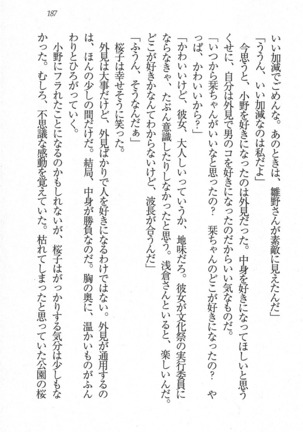 187
いい加減でごめんな。あのときは、雛野さんが素敵に見えたんだ」
「ううん、いい加減なのは私だよ」
今思うと、小野を好きになったのは外見だった。中身を好きになってほしいと思う
くせに、自分は外見で男のコを好きになったのだからいい気なものだ。
「いつから栞ちゃんがいいなと思ったの？　栞ちゃんのどこが好きになったの？　や
っぱ、かわいいから？」
「かわいいけど、彼女、大人しいっていうか、地味だろ。彼女が文化祭の実行委員に
ならなきゃ、たぶん意識したりしなかったと思う。浅倉さんといると、楽しいんだ。
どこが好きかなんてわからないけど、波長が合うんだ」
「ふうん、そうなんだぁ」
桜子は幸せそうに笑った。
外見は大事だけど、外見ばかりで人を好きになるわけではない。外見が通用するの
は、ほんの少しの間だけだ。結局、中身が勝負なのだ。胸の奥に、温かいものがふん
わりとひろがっていく。
小野にフラれたことになるのかもしれないが、桜子はがっかりする気分は少しもな
かった。むしろ、不思議な感動を覚えていた。枯れてしまったと思っていた公園の桜